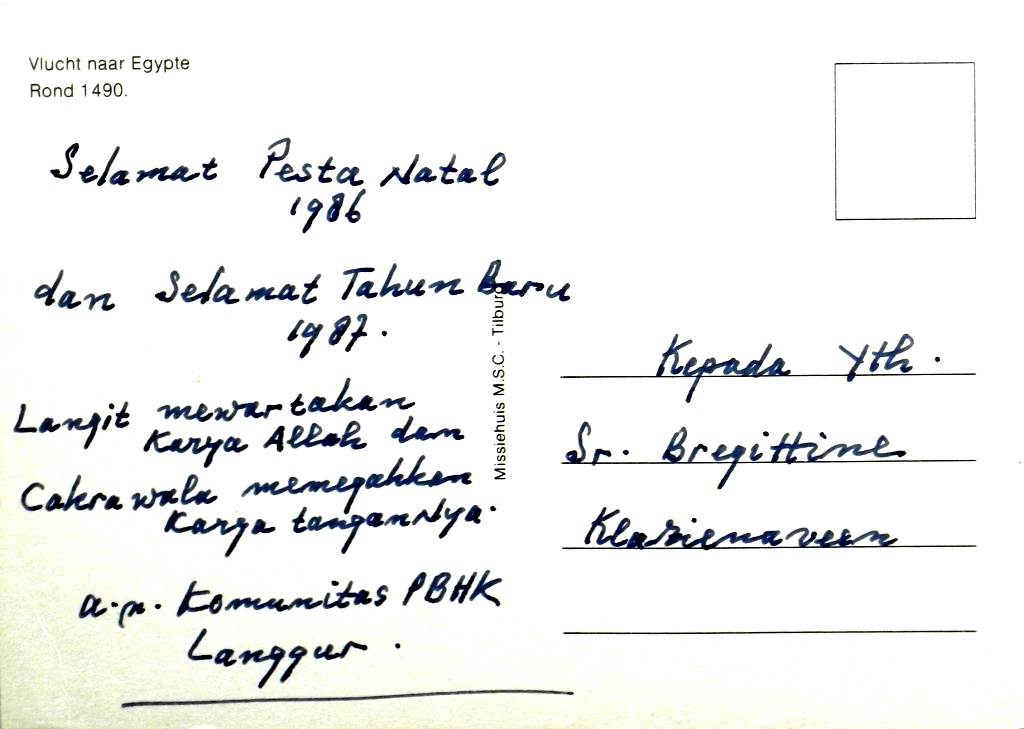 Vlucht naar Egypte
Rond 1490.
Selamat Pesta Natal
1986
dan Selamat Tahun Baru
1987.
Langit mewartakan
Karya Allah dan
Cakrawala memegahkan
Karya tanganNya.
a.n. Komunitas PBHK
Langgur.
Missiehuis M.S.C. - Tilburg
Kepada Yth.
Sr. Bregittine
Klazienaveen